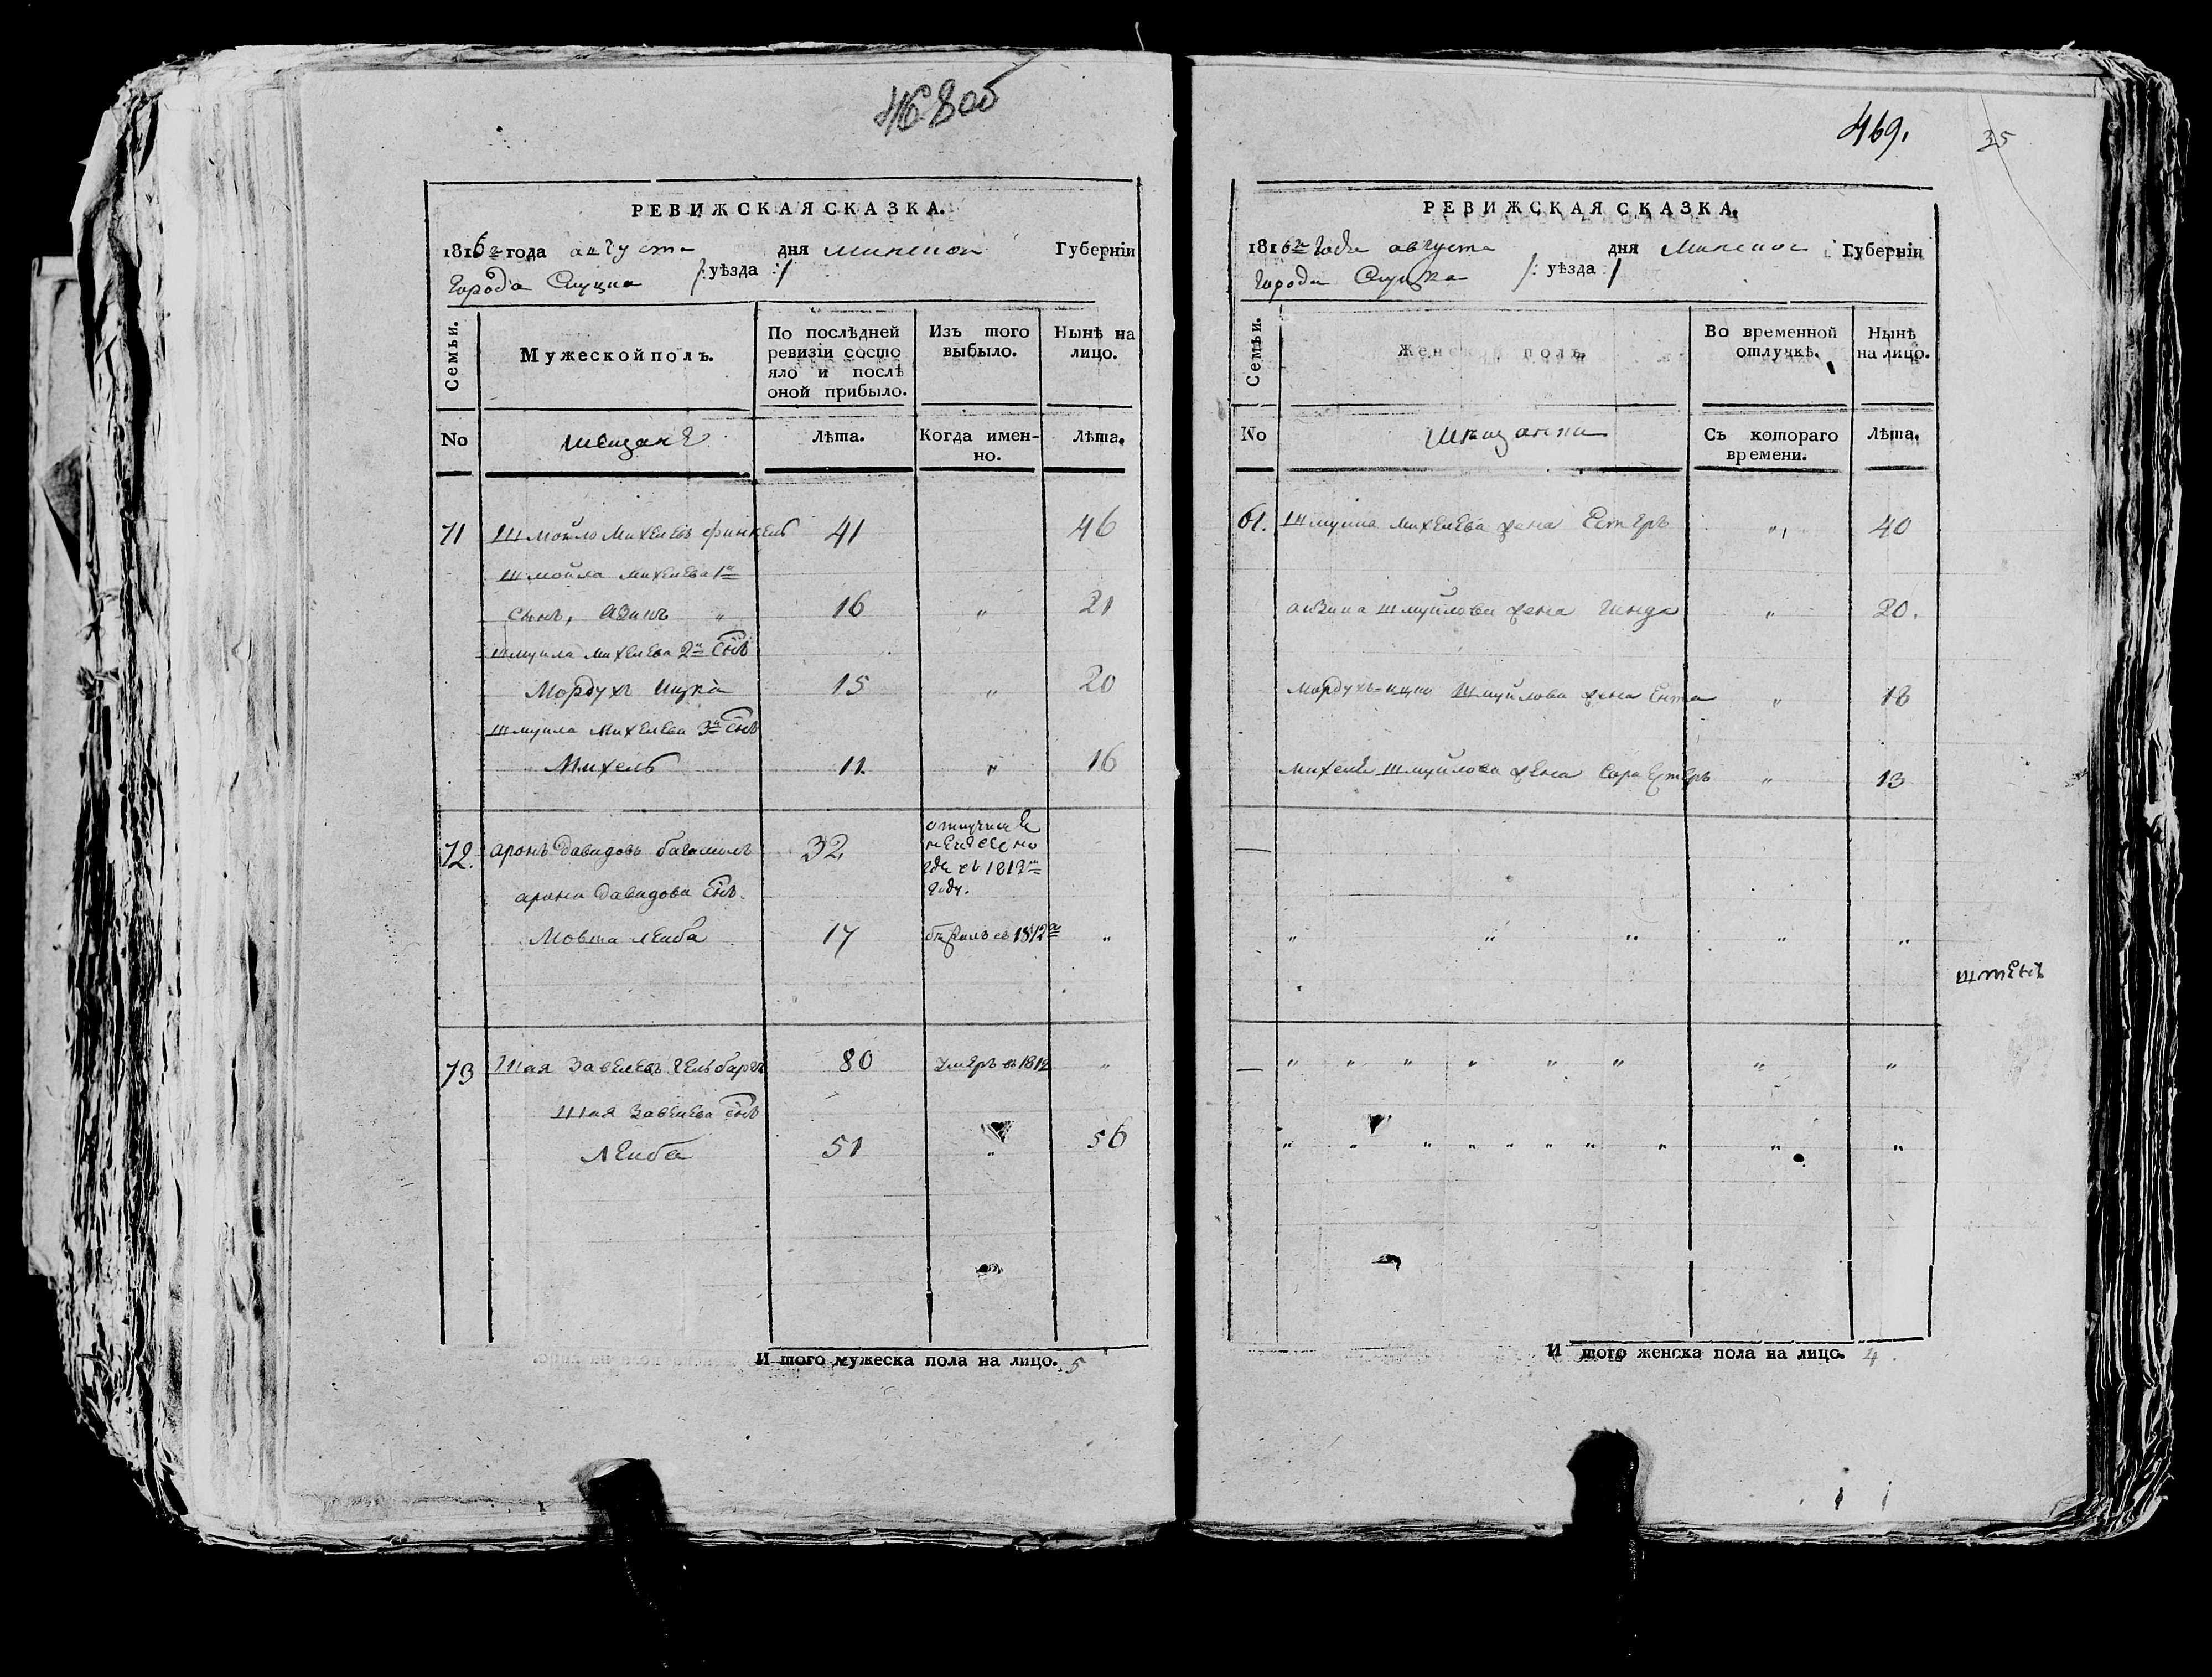 468об
РЕВИЖСКАЯ СКАЗКА.
1816го года августа дня Минской Губерніи
Города Слуцка /: уѣзда :/
Семьи.
Мужеской полъ.
По послѣдней ревизіи состояло и послѣ оной прибыло.
Изъ того выбыло.
Нынѣ на лицо.
No
Мещане
Лѣта.
Когда именно.
Лѣта.
71 Шмойло Михелевъ Финкель 41 46
Шмойла Михелева 1й
сынъ, Азикъ " 16 " 21
Шмуила Михелева 2й сынъ
Мордухъ Ицка 15 " 20
Шмуила Михелева 3й сынъ
Михель 11. " 16
72. Аронъ Давидовъ 32.
въ 1812м
году.
Арона Давидова сынъ
Мовша Лейба 17 бѣжалъ въ 1812м "
73 Шая Завелевъ 80 умеръ въ 1812 "
Шая Завелева сынъ
Лейба 51 " 56
И того мужеска пола на лицо. 5
469.
35
РЕВИЖСКАЯ СКАЗКА.
1816го Года августа дня Минской Губерніи
Города Слуцка /: уѣзда :/
Семьи.
Женской полъ.
Во временной отлучкѣ.
Нынѣ на лицо.
No
Мещанки
Съ котораго времени.
Лѣта.
Шмуила Михелева жена Естеръ " 40
Азика Шмуйлова жена Гинда " 20.
Мордухъ-Ицко Шмуйлова жена Ента " 18
Михеля Шмуйлова жена Сора Естеръ " 13
" " " " "
" " " " " " " "
" " " " " " " " " "
И того женска пола на лицо. 4